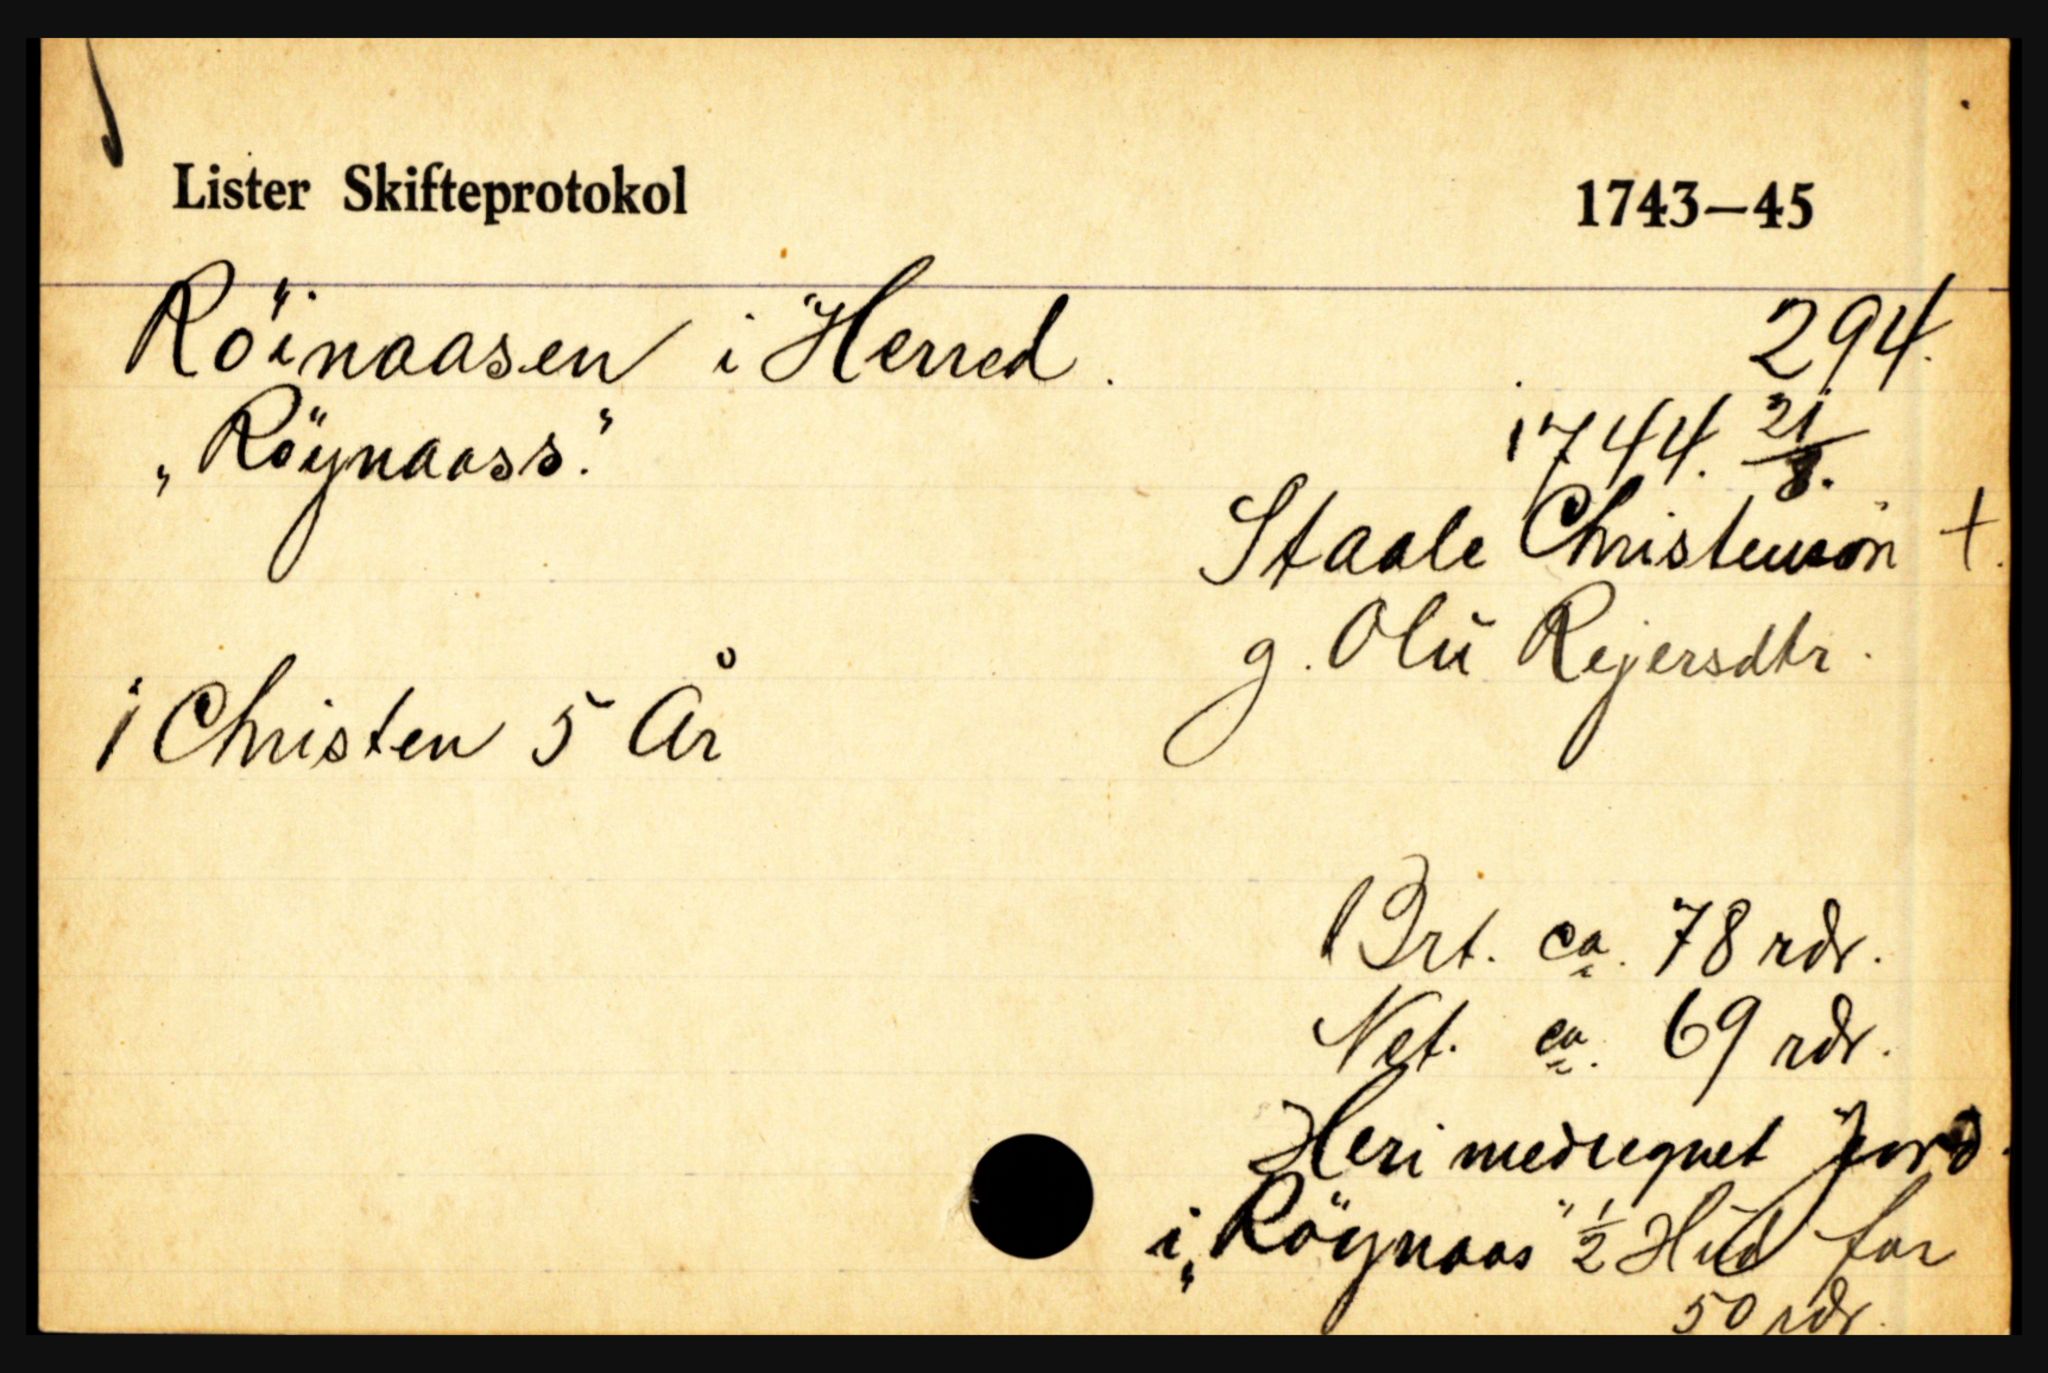 Lister Skifteprotokol 1743—45
Röinaasen i Herred. 294.
„Röynaass." 1744. 21/8.
Staale Christensön +.
g. Olu Rejersdtr.
1 Christen 5 År
Brt. ca. 78 rdr.
Net. ca. 69 rdr.
Heri medregnet Jord
i „Röynaas" ½ Hud for
50 rdr.